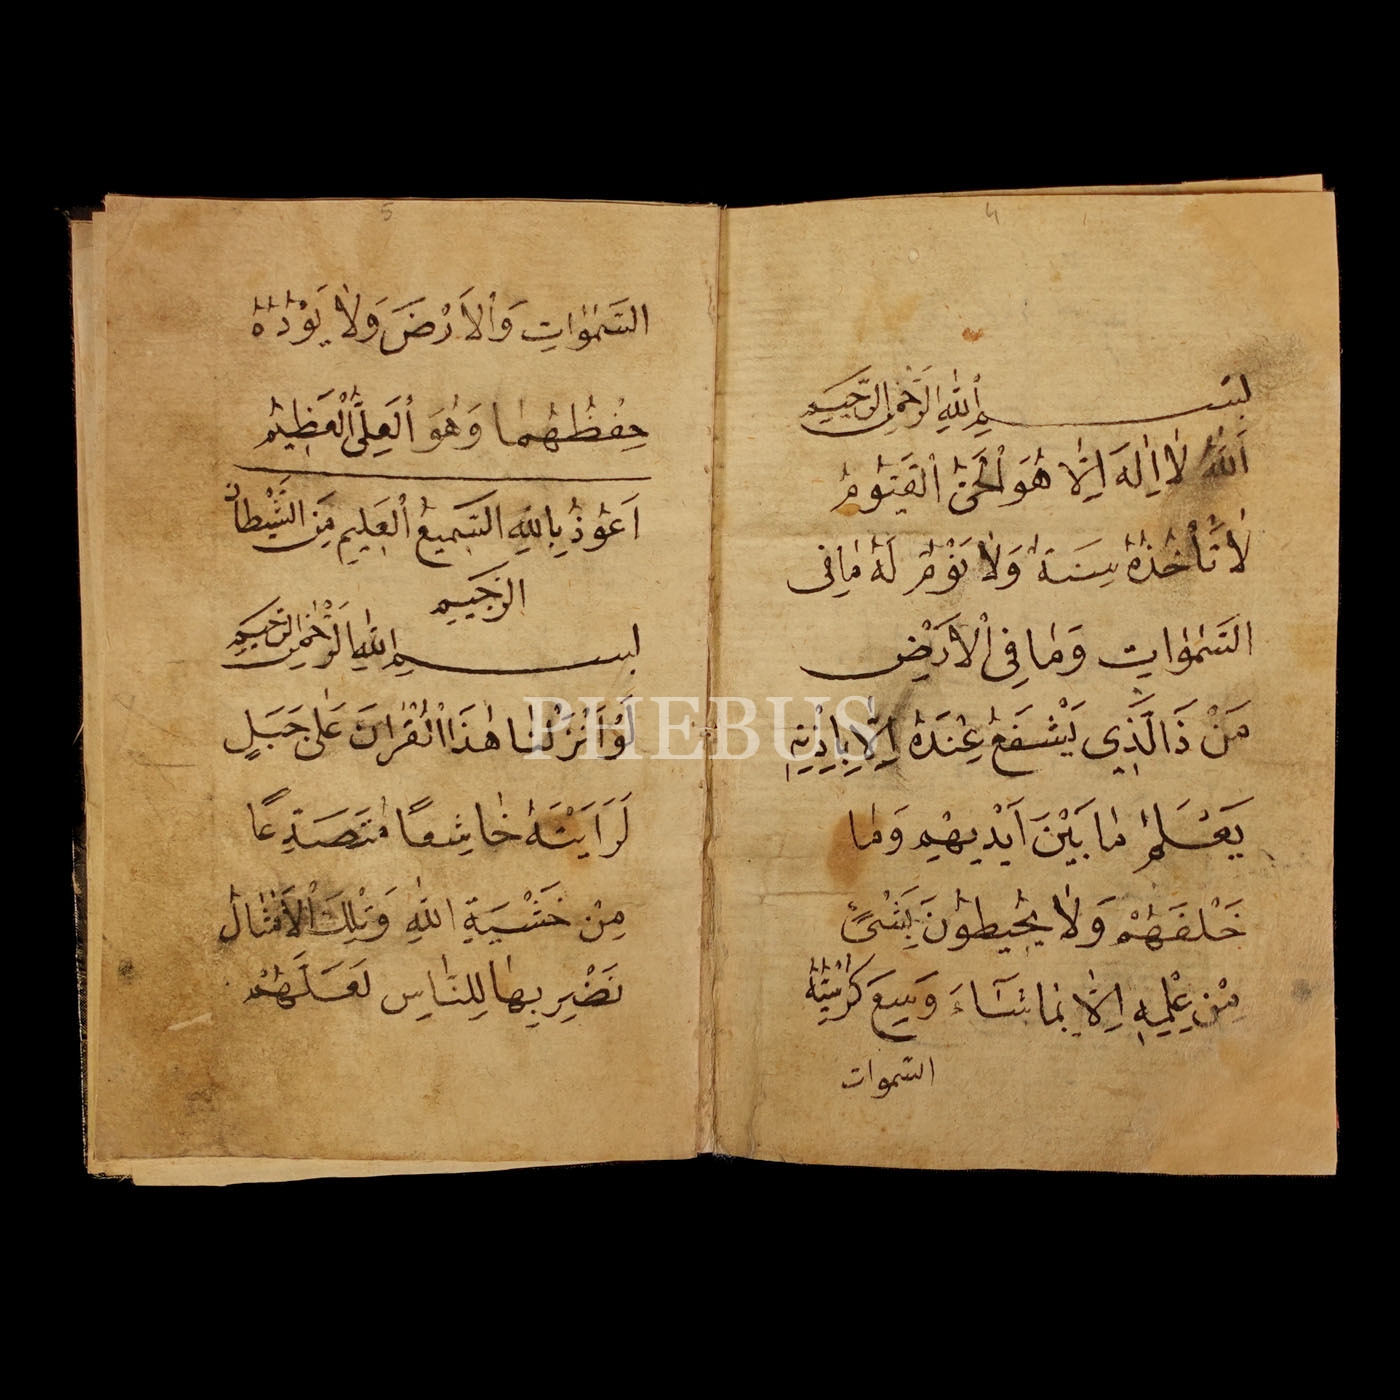 4
بسم الله الرحمن الرحيم
اَللّٰهُ لَا اِلٰهَ اِلَّا هُوَ اَلْحَىُّ اَلْقَيُّومُ
لَا تَأْخُذُهُ سِنَةٌ وَلَا نَوْمٌ لَهُ مَا فِى
السَّمٰوَاتِ وَمَا فِى اْلاَرْضِ
مَنْ ذَا الَّذِى يَشْفَعُ عِنْدَهُ اِلَّا بِاِذْنِهِ
يَعْلَمُ مَا بَيْنَ اَيْدِيهِمْ وَمَا
خَلْفَهُمْ وَلَا يُحِيطُونَ بِشَىْءٍ
مِنْ عِلْمِهِ اِلَّا بِمَا شَاءَ وَسِعَ كُرْسِيُّهُ
السموات
5
السَّمٰوَاتِ وَاْلاَرْضَ وَلَا يَؤُدُهُ
حِفْظُهُمَا وَهُوَ اَلْعَلِىُّ الْعَظِيمُ
اَعُوذُ بِاللّٰهِ السَّمِيعُ اَلْعَلِيمِ مِنَ الشَّيْطَانِ
الرَّجِيمِ
بسم الله الرحمن الرحيم
لَوْ اَنْزَلْنَا هٰذَا الْقُرْاٰنَ عَلٰى جَبَلٍ
لَرَاَيْتَهُ خَاشِعًا مُتَصَدِّعًا
مِنْ خَشْيَةِ اللّٰهِ وَتِلْكَ اْلاَمْثَالُ
نَضْرِبُهَا لِلنَّاسِ لَعَلَّهُمْ
PHEBUS